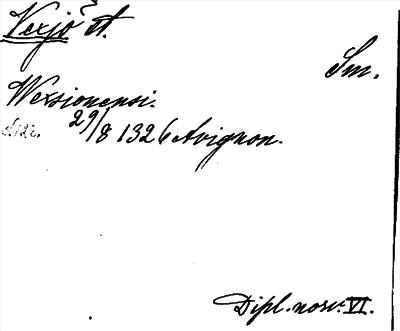 Vexjö st.
Sm.
Wexsionensi.
29/8 1326 Avignon.
Dipl. norv. VI.